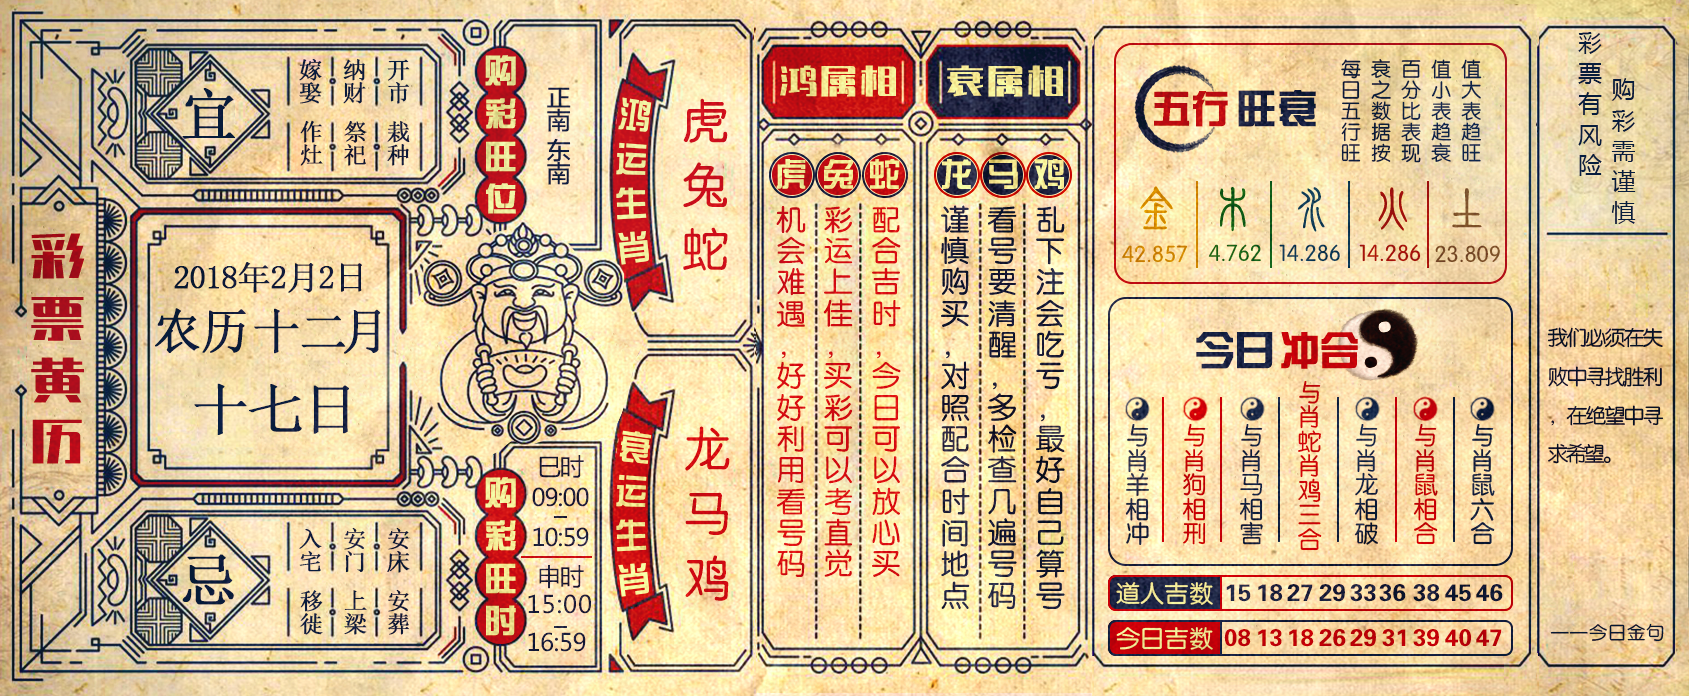 彩票黄历
宜
开市 栽种
纳财 祭祀
嫁娶 作灶
2018年2月2日
农历十二月
十七日
忌
安床 安葬
安门 上梁
入宅 移徙
购彩旺位
正南 东南
购彩旺时
巳时
09:00
–
10:59
申时
15:00
–
16:59
鸿运生肖
虎
兔
蛇
衰运生肖
龙
马
鸡
鸿属相
虎
机会难遇，好好利用看号码
兔
彩运上佳，买彩可以考直觉
蛇
配合吉时，今日可以放心买
衰属相
龙
谨慎购买，对照配合时间地点
马
看号要清醒，多检查几遍号码
鸡
乱下注会吃亏，最好自己算号
五行旺衰
每日五行旺
衰之数据按
百分比表现
值小表趋衰
值大表趋旺
金 木 水 火 土
42.857 4.762 14.286 14.286 23.809
今日冲合
与肖羊相冲
与肖狗相刑
与肖马相害
与肖蛇肖鸡三合
与肖龙相破
与肖鼠相合
与肖鼠六合
道人吉数 15 18 27 29 33 36 38 45 46
今日吉数 08 13 18 26 29 31 39 40 47
彩票有风险
购彩需谨慎
我们必须在失
败中寻找胜利
，在绝望中寻
求希望。
——今日金句